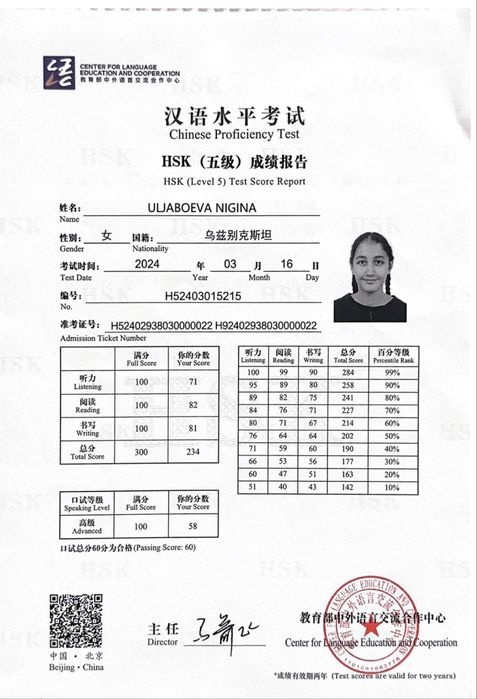 CENTER FOR LANGUAGE
EDUCATION AND COOPERATION
教育部中外语言交流合作中心
汉语水平考试
Chinese Proficiency Test
HSK（五级）成绩报告
HSK (Level 5) Test Score Report
姓名： ULJABOEVA NIGINA
Name
性别： 女 国籍： 乌兹别克斯坦
Gender Nationality
考试时间： 2024 年 03 月 16 日
Test Date Year Month Day
编号： H52403015215
No.
准考证号： H52402938030000022 H92402938030000022
Admission Ticket Number
满分 你的分数
Full Score Your Score
听力 100 71
Listening
阅读 100 82
Reading
书写 100 81
Writing
总分 300 234
Total Score
听力 阅读 书写 总分 百分等级
Listening Reading Writing Total Score Percentile Rank
100 99 90 284 99%
95 89 80 258 90%
89 82 75 241 80%
84 76 71 227 70%
80 71 67 214 60%
76 64 64 202 50%
71 59 60 190 40%
66 53 56 177 30%
60 47 51 163 20%
51 40 43 142 10%
口试等级 满分 你的分数
Speaking Level Full Score Your Score
高级 100 58
Advanced
口试总分60分为合格(Passing Score: 60)
中国・北京
Beijing・China
主任
Director
教育部中外语言交流合作中心
Center for Language Education and Cooperation
*成绩有效期两年 (Test scores are valid for two years)